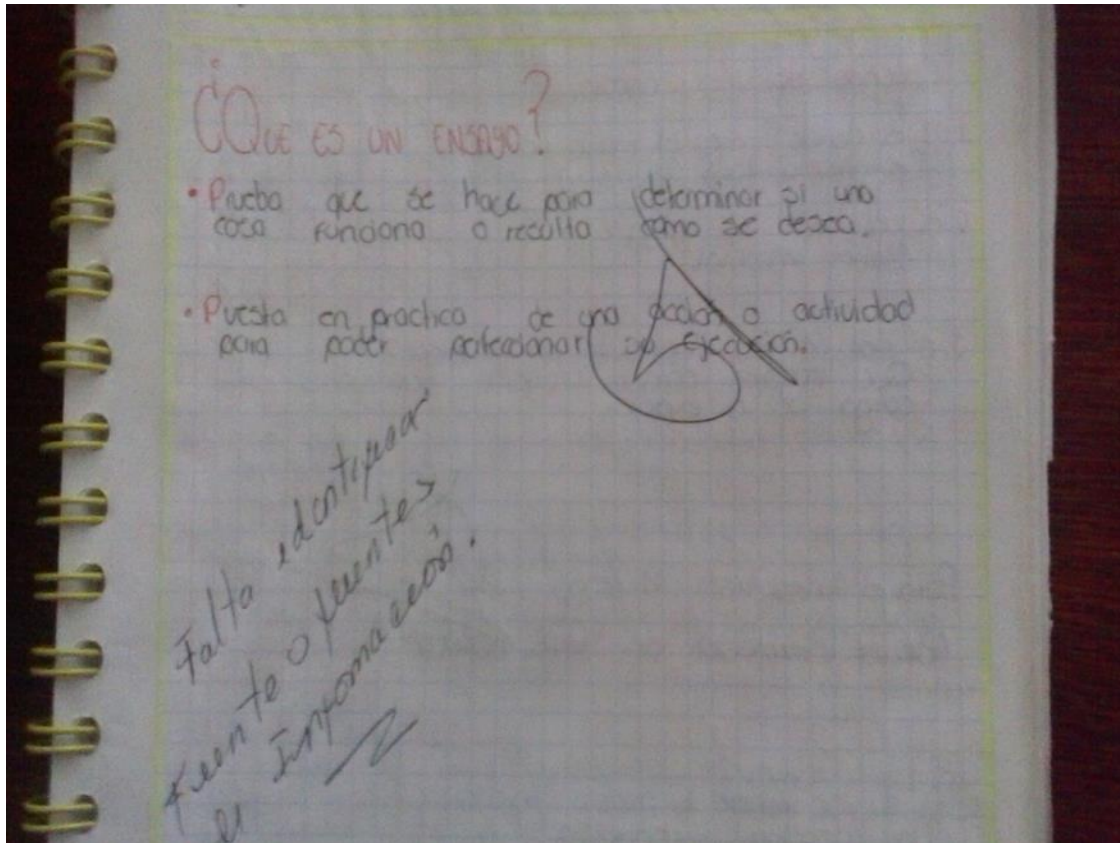 ¿QUE ES UN ENSAYO?
• Prueba que se hace para determinar si una
cosa funciona o resulta como se desea.
• Puesta en practica de una acción o actividad
para poder perfeccionar su ejecución.
Falta identificar
fuente o fuentes
Información.